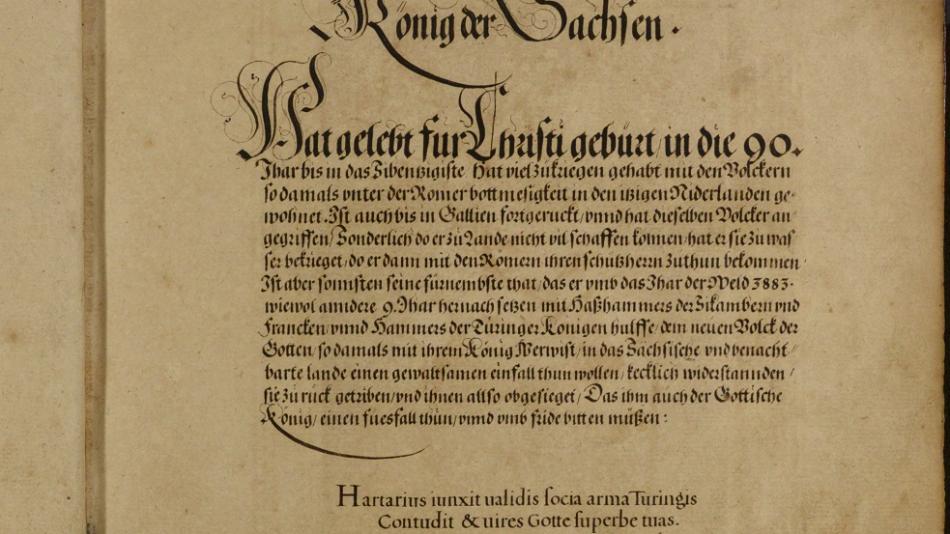 König der Sachsen.
Hat gelebt für Christi geburt, in die 90.
Jhar bis in das Sibentzigiste Hat viel zu kriegen gehabt mit den Völckern
so damals vnter der Römer bottmesigkeit in den itzigen Niderlanden ge-
wohnet. Ist auch bis in Gallien fortgeruckt, vnnd hat dieselben Völcker an-
gegriffen, Sonderlich do er zu Lande nicht vil schaffen können, hat er sie zu was-
ser bekrieget, do er dann mit den Römern ihren schutzherrn zuthun bekommen
Ist aber sonnsten seine fürnembste that, das er vmb das Jhar der Weld 3883.
wiewol anndere 9. Jhar hernach setzen mit Haßhammers der Sikambern vnd
Francken, vnnd Hammers der Türinger Königen hülffe, dem neuen Volck der
Gotten, so damals mit ihrem König Werwist, in das Sächsische vnd benacht-
barte lande einen gewaltsamen einfall thun wollen, kecklich widerstannden,
sie zu rück getriben, vnd ihnen allso obgesieget, Das ihm auch der Gottische
König, einen fuesfall thün, vnnd vmb fride bitten müßen:
Hartarius iunxit ualidis socia arma Turingis
Contudit & uires Gotte superbe tuas.